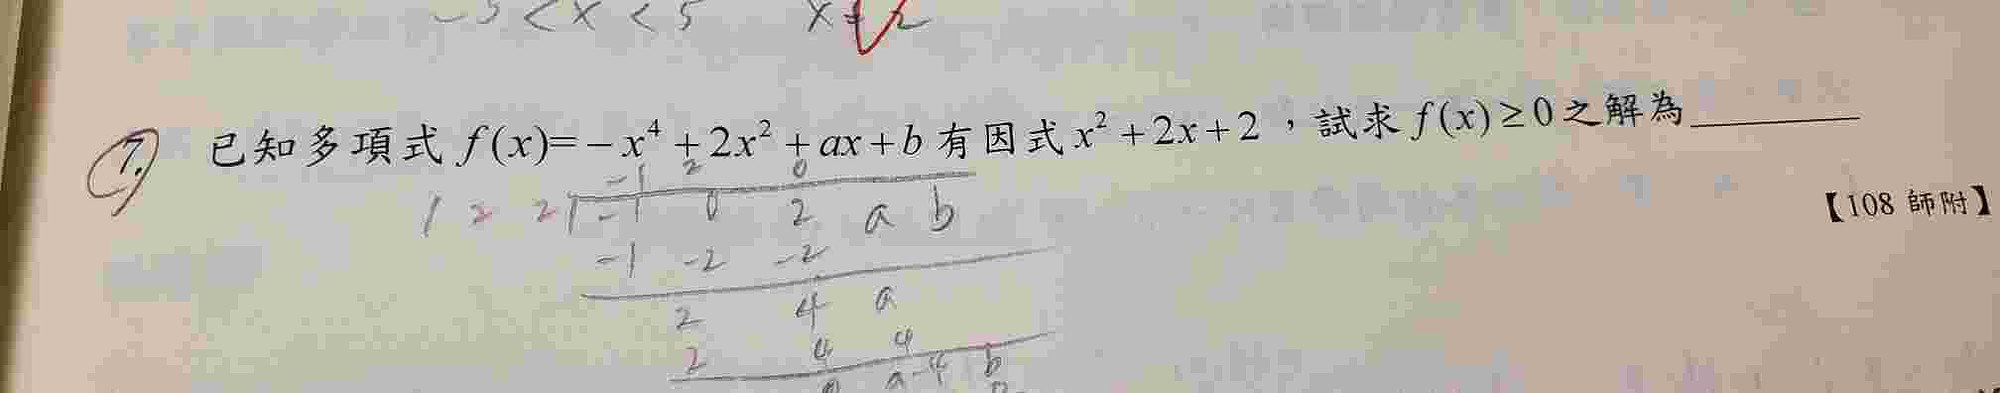 -5 < x < 5 x ≠ 2
7. 已知多項式 f(x)=-x⁴+2x²+ax+b 有因式 x²+2x+2，試求 f(x)≥0 之解為________
-1 2 0
1 2 2 -1 0 2 a b
【108 師附】
-1 -2 -2
2 4 a
2 4 4
0 a-4 b